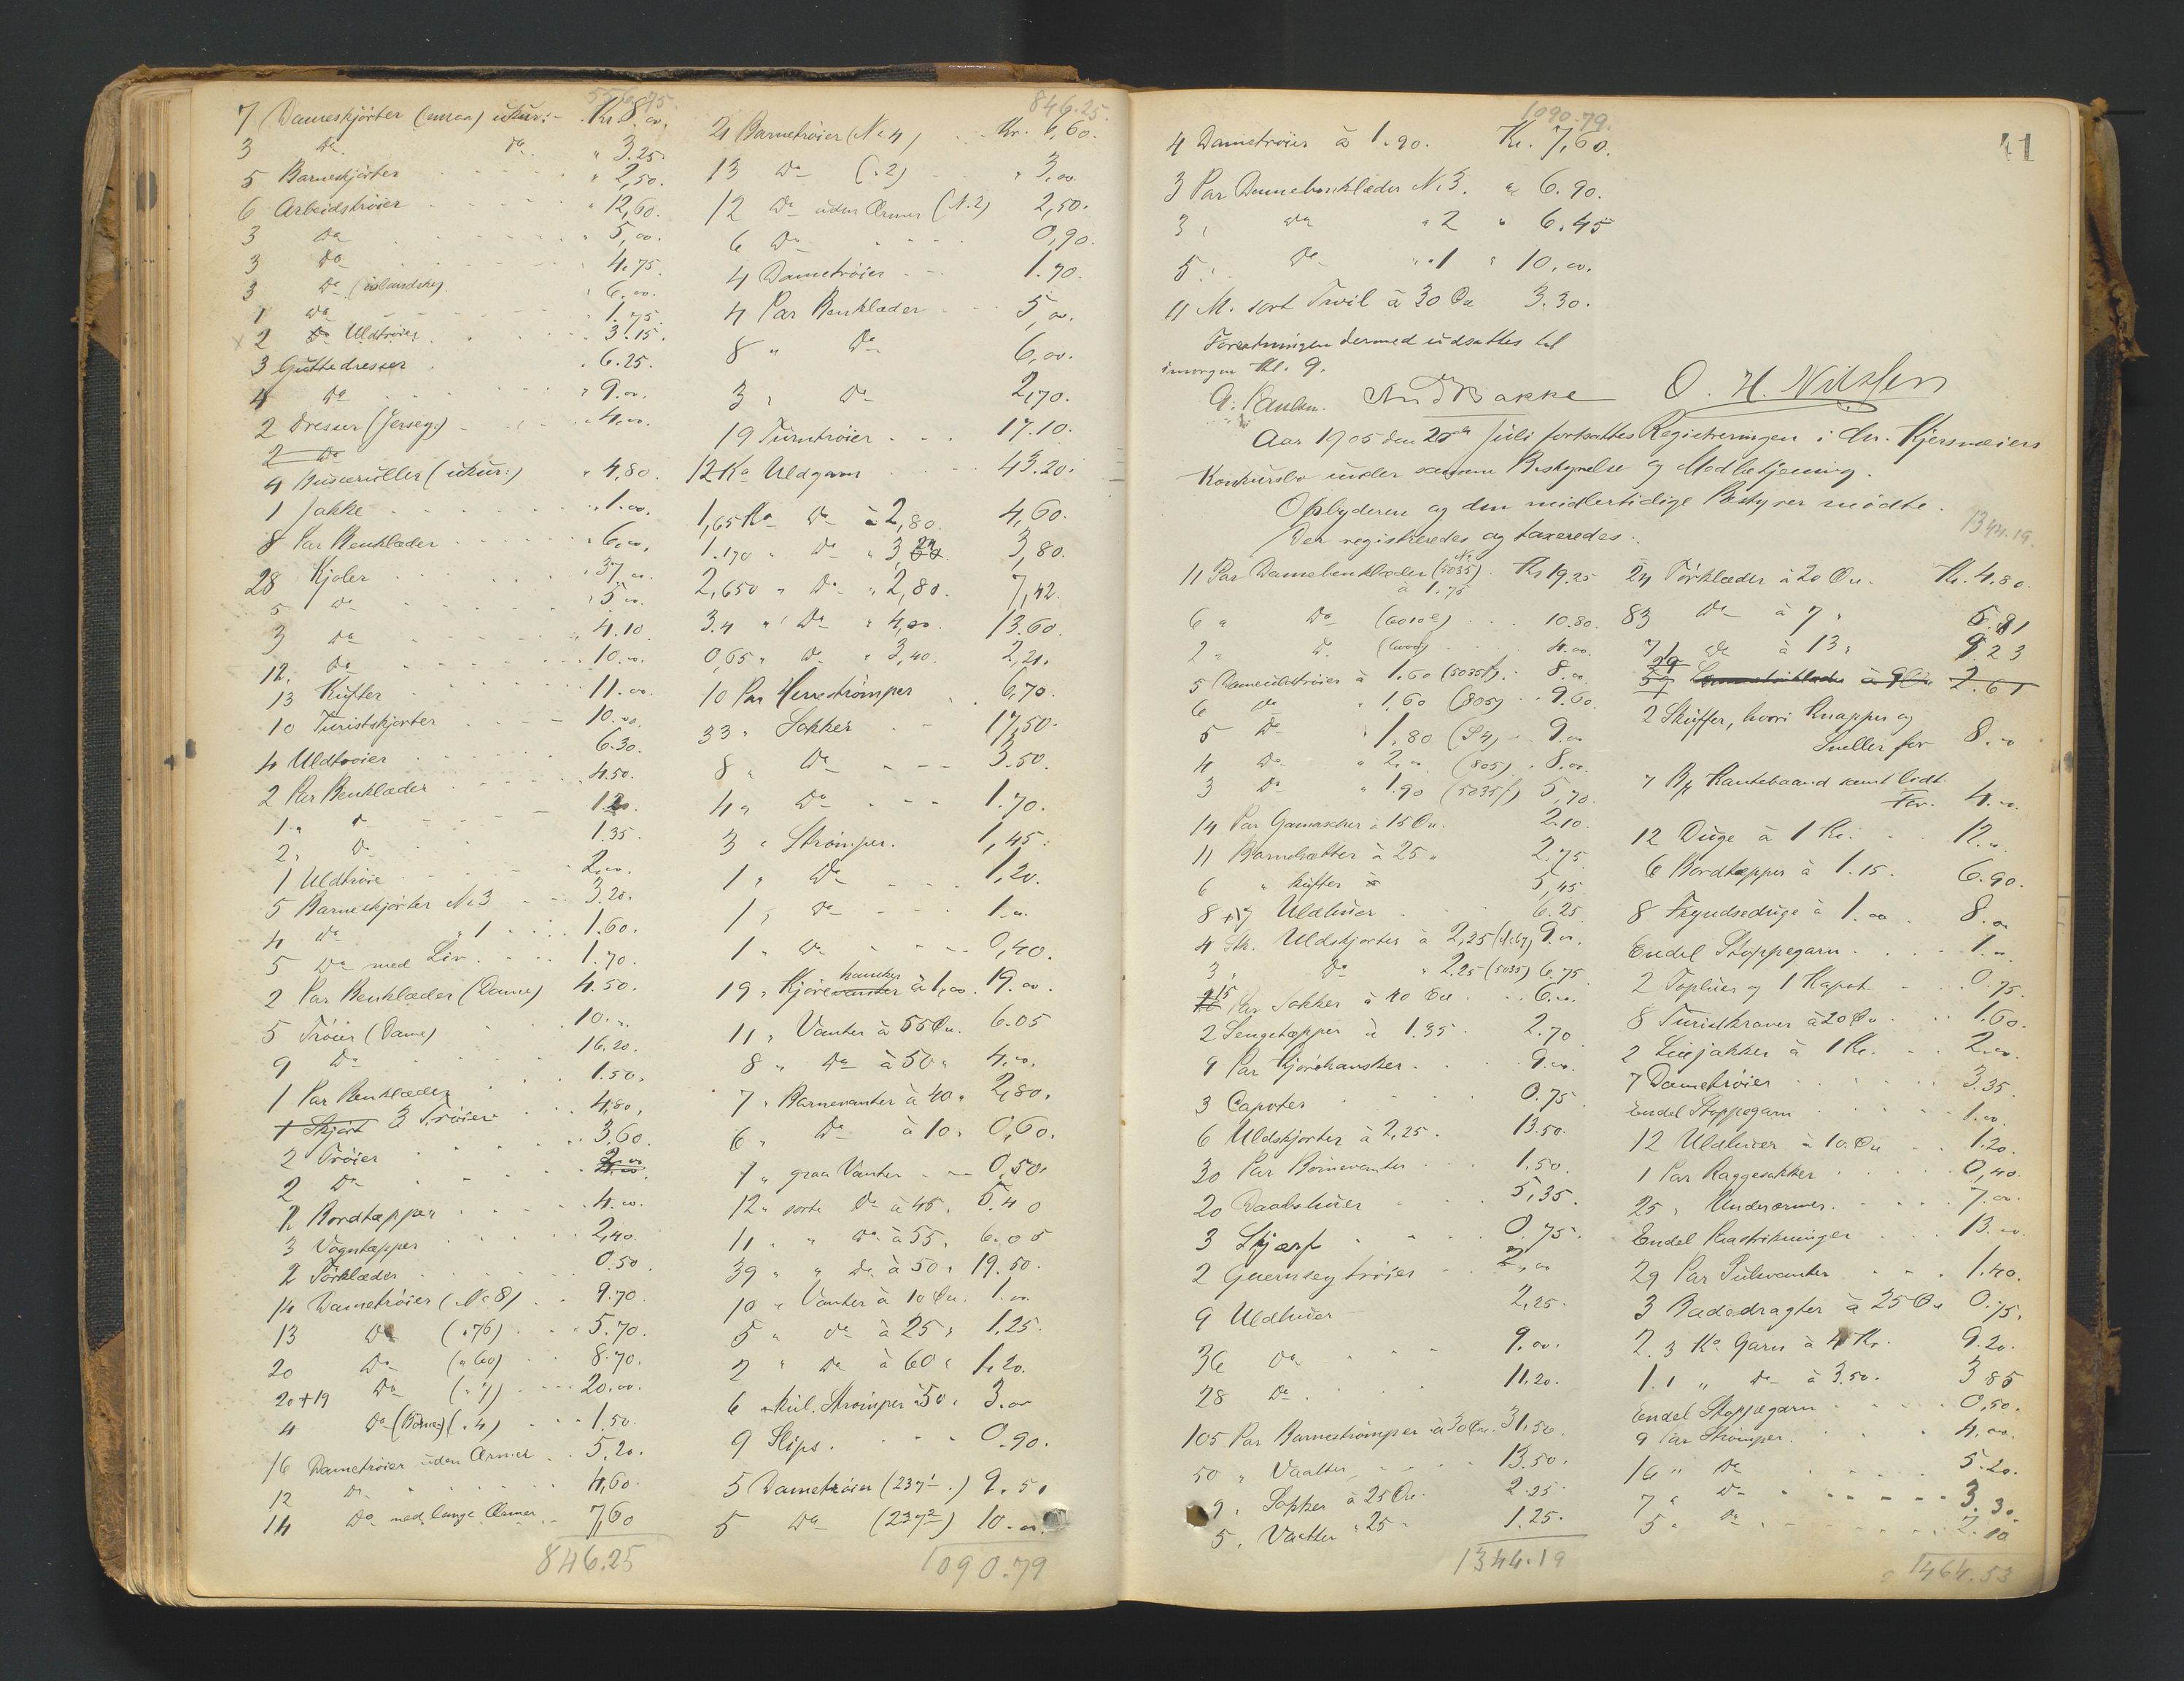 556.75.
7 Dameskjörter (smaa) ukur: Kr. 8.00.
3 Do do " 3.25.
5 Barneskjörter " 2,50.
6 Arbeidströier " 12,60.
3 Do " 5,00.
3 Do 4.75.
3 Do (islandske) " 6.00.
1 Do 1.75.
x 2 Uldtröier 3.15.
3 Guttedresser 6.25.
4 Do " 9.00.
2 Dresser (Jersey:) 4.00.
2 Do
9 Buseruller (ukur:) " 4,80.
1 Jakke " 1.00.
8 Par Benklæder " 6,00.
28 Kjoler 37,00.
5 Do " 5.00.
3 Do 4.10.
12. Do 10.00.
13 Kufter 11.00.
10 Turistskjorter 10.00.
4 Uldtröier 6.30.
2 Par Benklæder 4.50.
1 " D 1.20.
2 " Do 1.35.
1 Uldtröie 2,00.
5 Barneskjorter No 3 3.20.
4 Do " 1 1.60.
5 Do med Liv 1.70.
2 Par Benklæder (Dame) 4.50.
5 Tröier (Dame) 10.00.
9 Do 16.20.
1 Par Benklæder 1.50.
1 Skjört 3 Tröier 4,80.
2 Tröier 3.60.
2 Do 2.00
2 Bordtæpper 4.00.
3 Vogntæpper 2,40.
2 Törklæder 0.50.
14 Dametröier (No 8) 9.70.
13 Do (" 76) 5.70.
20 Do (" 60) 8.70.
20+19 Do (" 7) 20.00.
4 Do (Börne) (" 4) 1.50.
16 Dametröier uden Ærmer 5.20.
12 Do 4,60.
14 Do med lange Ærmer 7,60
846.25
846.25.
21 Barnetröier (No 4) Kr. 6,60.
13 Do (" 2) " 3,00.
12 Do uden Ærmer (N. 2) 2,50.
6 Do 0,90.
4 Dametröier 1.90.
4 Par Benklæder 5,00.
8 " Do 6,00.
3 " Do 2,70.
19 Turntröier 17.10.
12 Ko Uldgarn 43.20.
1,65 Ko Do à 2,80. 4,60.
1.170 " Do " 3,24 3,80.
2,650 " Do " 2,80. 7,42.
3.4 " Do " 4,00. 13.60.
0,65 " Do " 3,40. 2,21.
10 Par Herreströmper 6,70.
33 " Sokker 17,50.
8 " Do 3.50.
4 " Do 1.70.
3 " Strömper. 1,45.
1 " Do 1,20.
1 " Do 1.00.
1 " Do 0,40.
19 " Kjörevanter hansker à 1,00. 19.00.
11 " Vanter à 55 Öre. 6.05
8 " Do à 50 " 4.00.
7 " Barnevanter à 40 " 2,80.
6 " Do à 10 " 0,60.
1 " graa Vanter 0,50.
12 " sorte Do à 45 " 5.40
11 " " Do à 55 " 6.05
39 " " Do à 50 " 19.50.
10 " Vanter à 10 Öre. 1.00
5 " Do à 25 " 1.25.
2 " Do à 60 " 1,20.
6 " kul. Strömper 50 " 3.00
9 Slips 0.90.
5 Dametröier (237 1) 9.50
5 Do (237 2) 10.00.
1090.79
1090.79.
41
4 Dametröier à 1.90. Kr. 7,60.
3 Par Damebenklæder N. 3. " 6.90.
3 " Do " 2 " 6.45
5 " Do " 1 " 10.00.
11 M. sort Twil à 30 Öre 3.30.
Forretningen dermed udsattes til
imorgen Kl. 9.
A. Paulsen. And Bakke O. H. Nilssen
Aar 1905 den 20de Juli fortsattes Registreringen i Chr. Kjersmeiers
Konkursbo under samme Bestyrelse og Medbetjening.
Opbyderen og den midlertidige Bestyrer mödte.
Der registreredes og taxeredes:
11 Par Damebenklæder (No 5035) à 1.75 Kr 19.25
6 " Do (6010 ) 10.80.
2 " D. (6000) 4.00.
5 Dameuldtröier à 1.60 (5035/) 8.00
6 Do " 1,60 (805) 9.60
5 Do " 1,80 (S4) 9.00
4 Do " 2.00 (805) " 8.00.
3 Do " 1.90 (5035/) 5,70.
14 Par Gamascher à 15 Öre. 2.10.
11 Barnehætter à 25 " 2.75.
6 " kufter 5,45.
8+17 Uldluer 6.25
4 Stk. Uldskjorter à 2,25 (N: 67) 9.00.
3 " Do " 2.25 (5035) 6.75
15 Par Sokker à 40 Öre 6.00.
2 Sengetæpper à 1.35. 2.70
9 Par Kjörehansker 9.00.
3 Capoter 0.75
6 Uldskjorter à 2,25. 13.50.
30 Par Börnevanter 1.50.
20 Daabsluer 5,35.
3 Skjærf 0.75.
2 Guernseytröier 2,00
9 Uldluer 2,25.
36 Do 9.00.
28 Do 11.20.
105 Par Barneströmper à 30 Öre. 31,50.
50 " Vaatter 13.50.
9 " Sokker à 25 Öre. 2.25.
5 " Vaatter " 25 " 1.25.
1344.19
1344.19.
24 Törklæder à 20 Öre. Kr. 4.80.
83 Do à 7 " 5.81
71 Do à 13 " 9.23
29 2.61
2 Skuffer, hvori Knapper og
Sneller for 8.00
7 Rp Kantebaand samt lidt
For. 4.00.
12 Duge à 1 Kr. 12.00.
6 Bordtæpper à 1.15. 6.90.
8 Fryndseduge à 1.00 8.00
Endel Stoppegarn 1.00.
2 Topluer og 1 Kapot 0.75.
8 Turistkraver à 20 Öre 1.60.
2 Liejakker à 1 Kr. 2.00.
7 Dametröier 3.35.
Endel Stoppegarn 1.00.
12 Uldluer à 10. Öre 1.20.
1 Par Raggesokker 0,40.
25 " Underærmer. 7.00.
Endel 13.00
29 Par Pulsvanter 1.40.
3 Badedragter à 25 Öre 0.75.
2.3 Ko Garn à 4 Kr. 9.20.
1.1 " Do à 3.50. 3.85
Endel Stoppegarn 0,50.
9 Par Strömper. 4.00.
16 " Do 5.20.
7 " Do 3.30.
5 " Do 2.10
1464.53